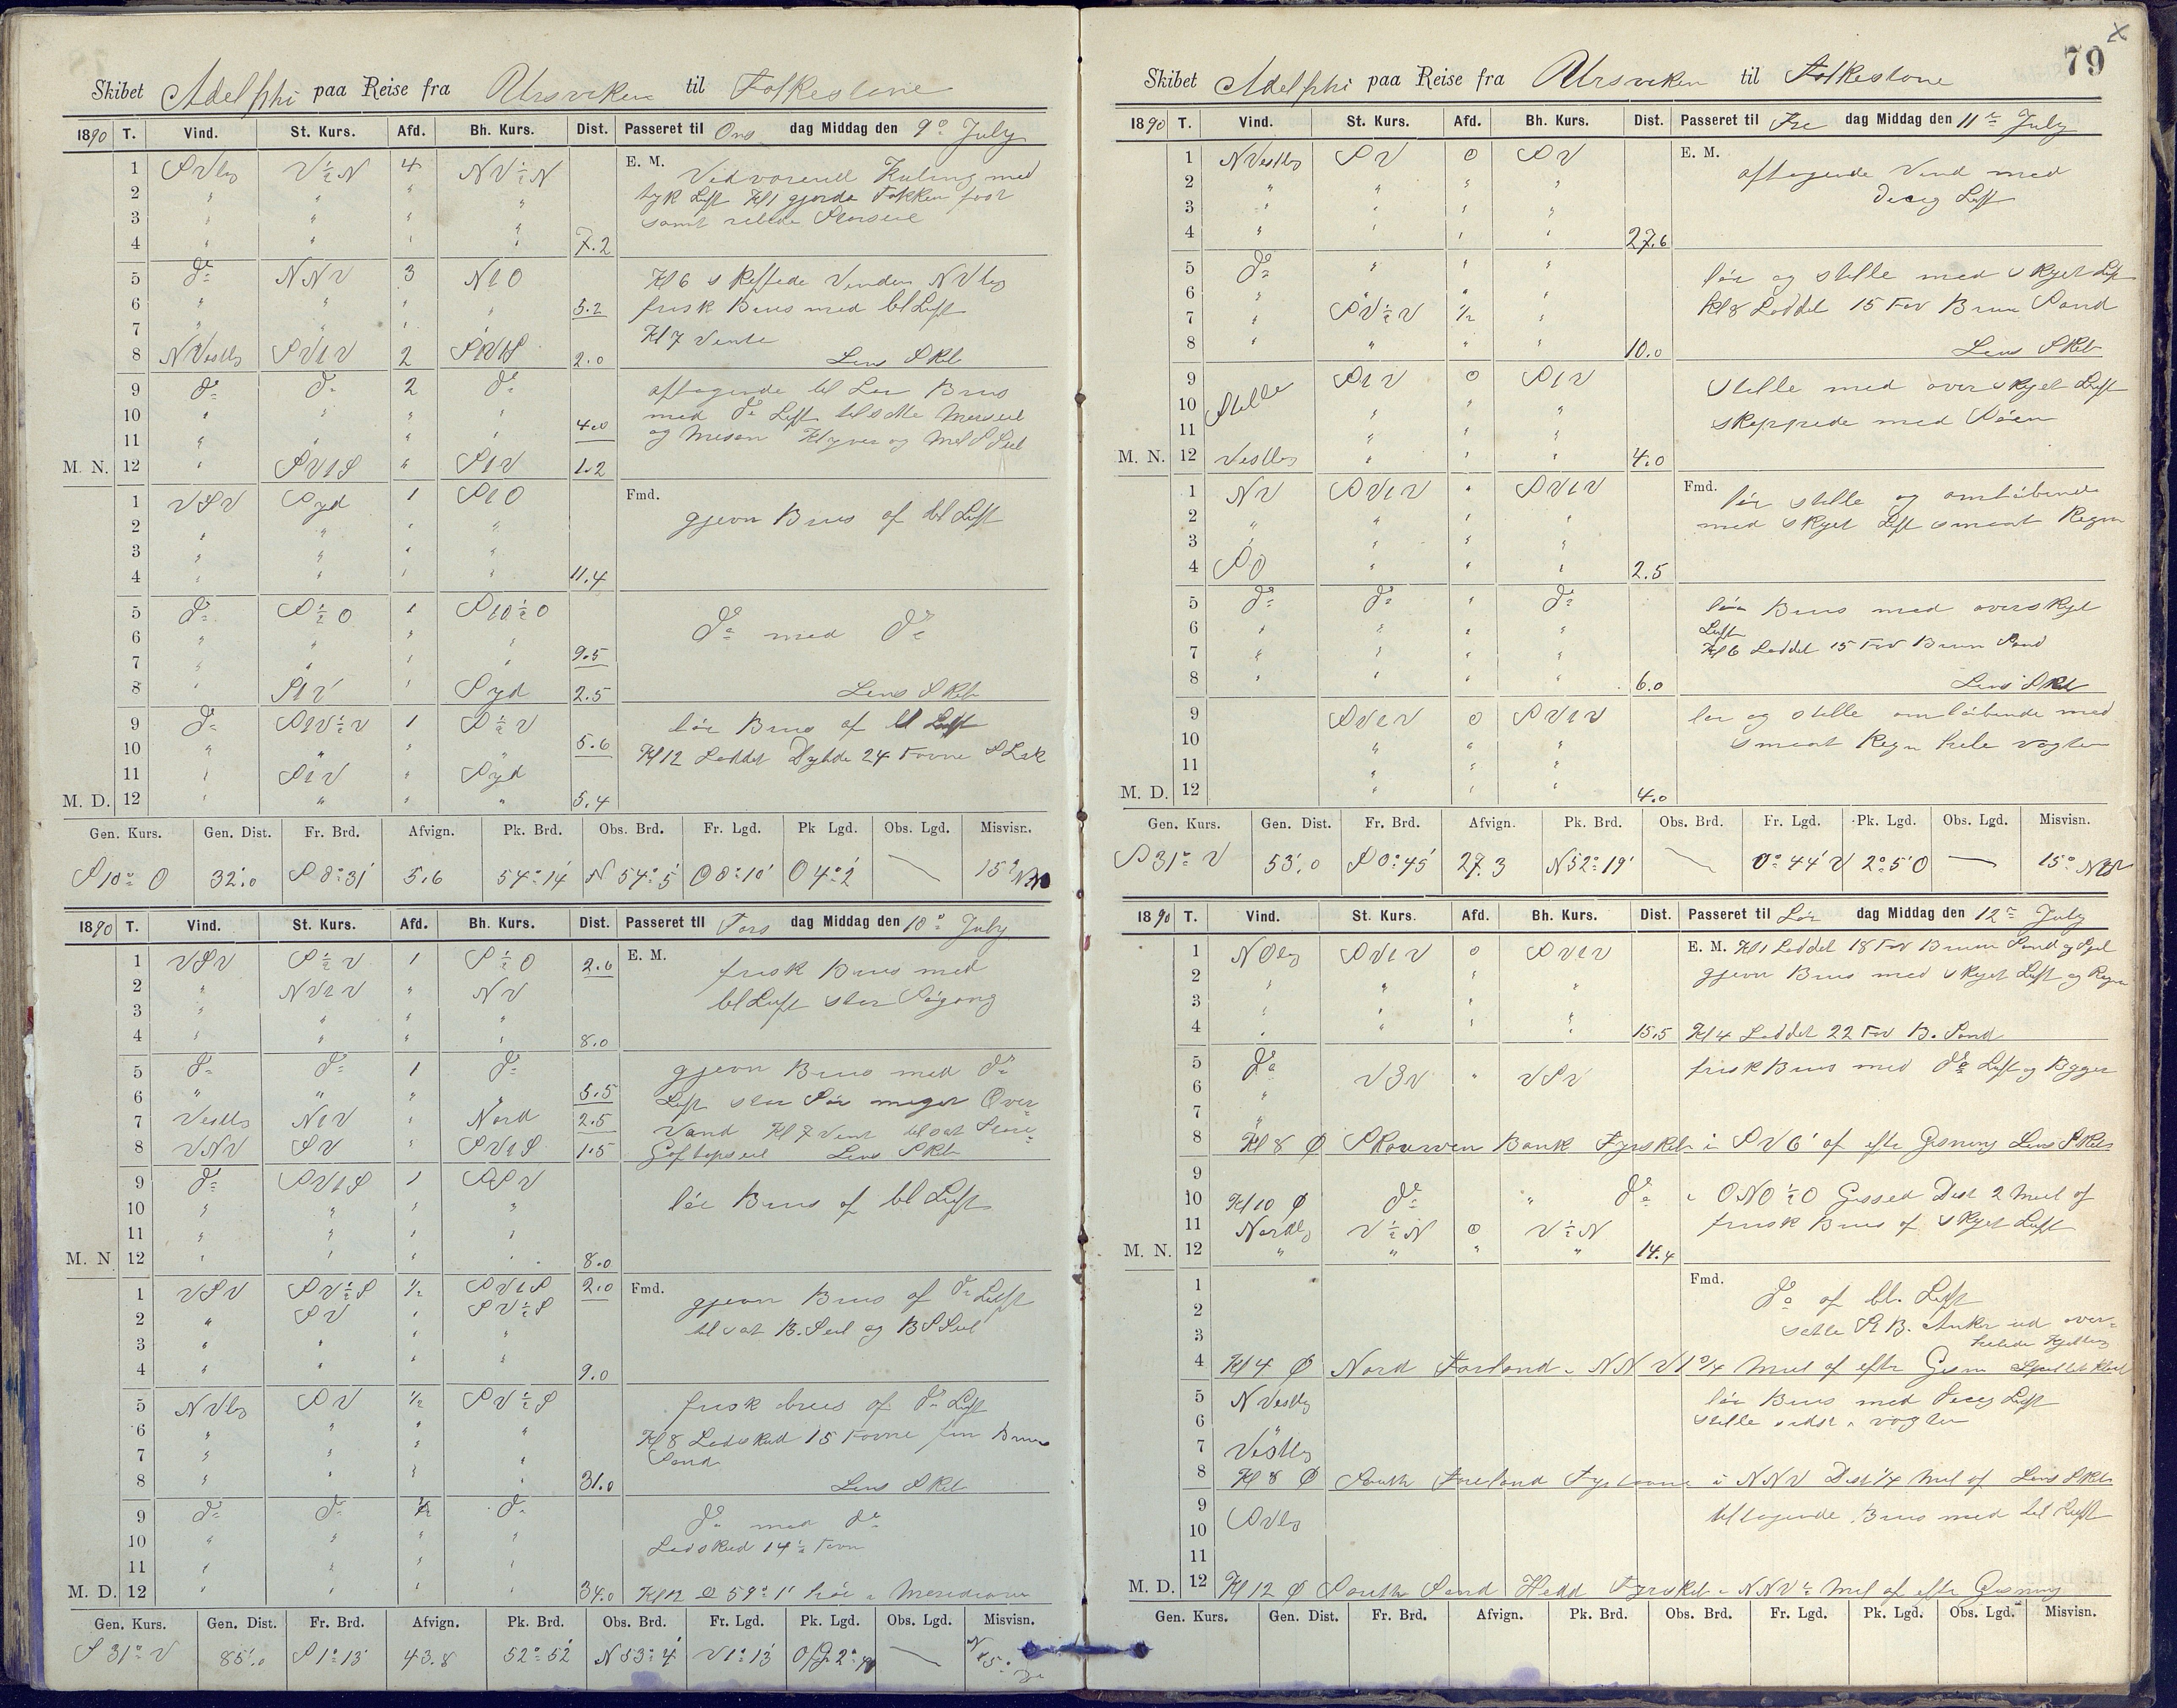 Skibet Adelphi paa Reise fra Ursviken til Folkestone
1890 T. Vind. St. Kurs. Afd. Bh. Kurs. Dist. Passeret til Ons dag Middag den 9de July
E. M.
1 SVlig V½N 4 NV½N Vedvarend Kuling med
2 " " " " tyk Luft Kl 1 gjorde Fokken fast
3 " " " " samt rebede Storseil
4 " " " " 7.2
5 do NNV 3 NtO Kl 6 skeftede Vinden NVlig
6 " " " " 5.2 frisk Bris med bl Luft
7 " " " " Kl 7 vente
8 NVestlig SVtV 2 SVtS 2.0 Lens Skib
9 do do 2 do aftagende til Lør Bris
10 " " " " 4.0 med do Luft tilsatte Merseil
11 " " " " og Mesan Klyver og
M. N. 12 " SVtS " StV 1.2
Fmd.
1 VSV Syd 1 StO gjevn Bris af bl Luft
2 " " " "
3 " " " "
4 " " " " 11.4
5 do S½O 1 StO½O do med do
6 " " " "
7 " " " " 9.5
8 " StV " Syd 2.5 Lens Skib
9 do StV½V 1 S½V lør Bris af bl Luft
10 " " " " 5.6 Kl 12 Loddet Dybde 24 Favne
11 " StV " Syd
M. D. 12 " " " " 5.4
Gen. Kurs. Gen. Dist. Fr. Brd. Afvign. Pk. Brd. Obs. Brd. Fr. Lgd. Pk Lgd. Obs. Lgd. Misvisn.
S 10° O 32'.0 S 0°31' 5.6 54°14' N 54°5' O 0°10' O 4°2' — 15°
1890 T. Vind. St. Kurs. Afd. Bh. Kurs. Dist. Passeret til Tors dag Middag den 10de July
E. M.
1 VSV S½V 1 S½O 2.6 frisk Bris med
2 " NVtV " NV bl Luft stor Søgang
3 " " " "
4 " " " " 8.0
5 do do 1 do gjevn Bris med do
6 " " " " 5.5 Luft stor Sør meget Over=
7 Vestlig NtV " Nord 2.5 Vand Kl 7 vent tilsat Store
8 VNV SV " SVtS 1.5 Goftopseil Lens Skib
9 do SVtS 1 SSV
10 " " " " lør Bris af bl Luft
11 " " " "
M. N. 12 " " " " 8.0
Fmd.
1 VSV SV½S ½ SVtS 2.0 gjevn Bris af do Luft
2 " SV " SV½S tilsat B. Seil og B S Seil
3 " " " "
4 " " " " 9.0
5 NVlig SV ½ SV½S frisk bris af do Luft
6 " " " " Kl 8 Lodskud 15 Favne fin Brun
7 " " " " Sand
8 " " " " 31.0 Lens Skib
9 do do ½ do do med do
10 " " " " Lodskud 14½ Favn
11 " " " "
M. D. 12 " " " " 34.0 Kl 12 59°1' hør i Meridian
Gen. Kurs. Gen. Dist. Fr. Brd. Afvign. Pk. Brd. Obs. Brd. Fr. Lgd. Pk. Lgd. Obs. Lgd. Misvisn.
S 31° V 85'.0 S 1°13' 43.8 52°52' N 53°4' V 1°13' —
79
X
Skibet Adelphi paa Reise fra Ursviken til Folkestone
1890 T. Vind. St. Kurs. Afd. Bh. Kurs. Dist. Passeret til Fre dag Middag den 11te July
E. M.
1 NVestlig SV 0 SV aftagende Vind med
2 " " " " Deisig Luft
3 " " " "
4 " " " " 27.6
5 do " " " lør og stille med skyet Luft
6 " " " " Kl 8 Loddet 15 Fav Brun Sand
7 " SV½V ½ "
8 " " " " 10.0 Lens Skib
9 Stille StV 0 StV Stille med overskyet Luft
10 " " " skeppede med Søen
11 " " "
M. N. 12 Vestlig " " " 4.0
Fmd.
1 NV SVtV " SVtV lør stille og omløbende
2 " " " " med skyet Luft smaat Regn
3 " " " "
4 SO " " " 2.5
5 do do " do lør Bris med overskyet
6 " " " " Luft
7 " " " " Kl 6 Loddet 15 Fav Brun Sand
8 " " " " 6.0 Lens Skib
9 SVtV 0 SVtV lør og stille omløbende med
10 " " " smaat Regn hele vagten
11 " " "
M. D. 12 " " " 4.0
Gen. Kurs. Gen. Dist. Fr. Brd. Afvign. Pk. Brd. Obs. Brd. Fr. Lgd. Pk. Lgd. Obs. Lgd. Misvisn.
S 31° V 53'.0 S 0°45' 27.3 N 52°19' — 0°44' V 2°5' O — 15° NV
1890 T. Vind. St. Kurs. Afd. Bh. Kurs. Dist. Passeret til Lør dag Middag den 12te July
E. M. Kl 1 Loddet 18 Fav Brun Sand og
1 NOlig SVtV 0 SVtV
2 " " " " gjevn Bris med skyet Luft og Regn
3 " " " "
4 " " " " 15.5 Kl 4 Loddet 22 Fav B. Sand
5 do VSV " VSV frisk Bris med do Luft og Byger
6 "
7 "
8 Kl 8 Ø Skouwen Bank Fyrskib i SV 6' af efter Gisning Lens Skib
9
10 Kl 10 Ø do " do i ONO½O Gisset Dist 2 Miil af
11 Nordlig V½N 0 V½N frisk Bris af skyet Luft
M. N. 12 " " " " 14.4
Fmd.
1 do af bl. Luft
2 satte B. Anker ud over=
3
4 Kl 4 Ø Nord Forland i NNV 1¾ Miil af efter Gisn
5 NVestlig lør Bris med Deisig Luft
6 " stille sidst i vagten
7 Vestlig
8 Kl 8 Ø South Forland Fyrtaarn i NNV Dist ¼ Miil af Lens Skib
9 SVlig tiltagende Bris med bl Luft
10
11
M. D. 12 Kl 12 Ø South Sand Hedd Fyrskib i NNV ½ Miil af efter Gisning
Gen. Kurs. Gen. Dist. Fr. Brd. Afvign. Pk. Brd. Obs. Brd. Fr. Lgd. Pk. Lgd. Obs. Lgd. Misvisn.